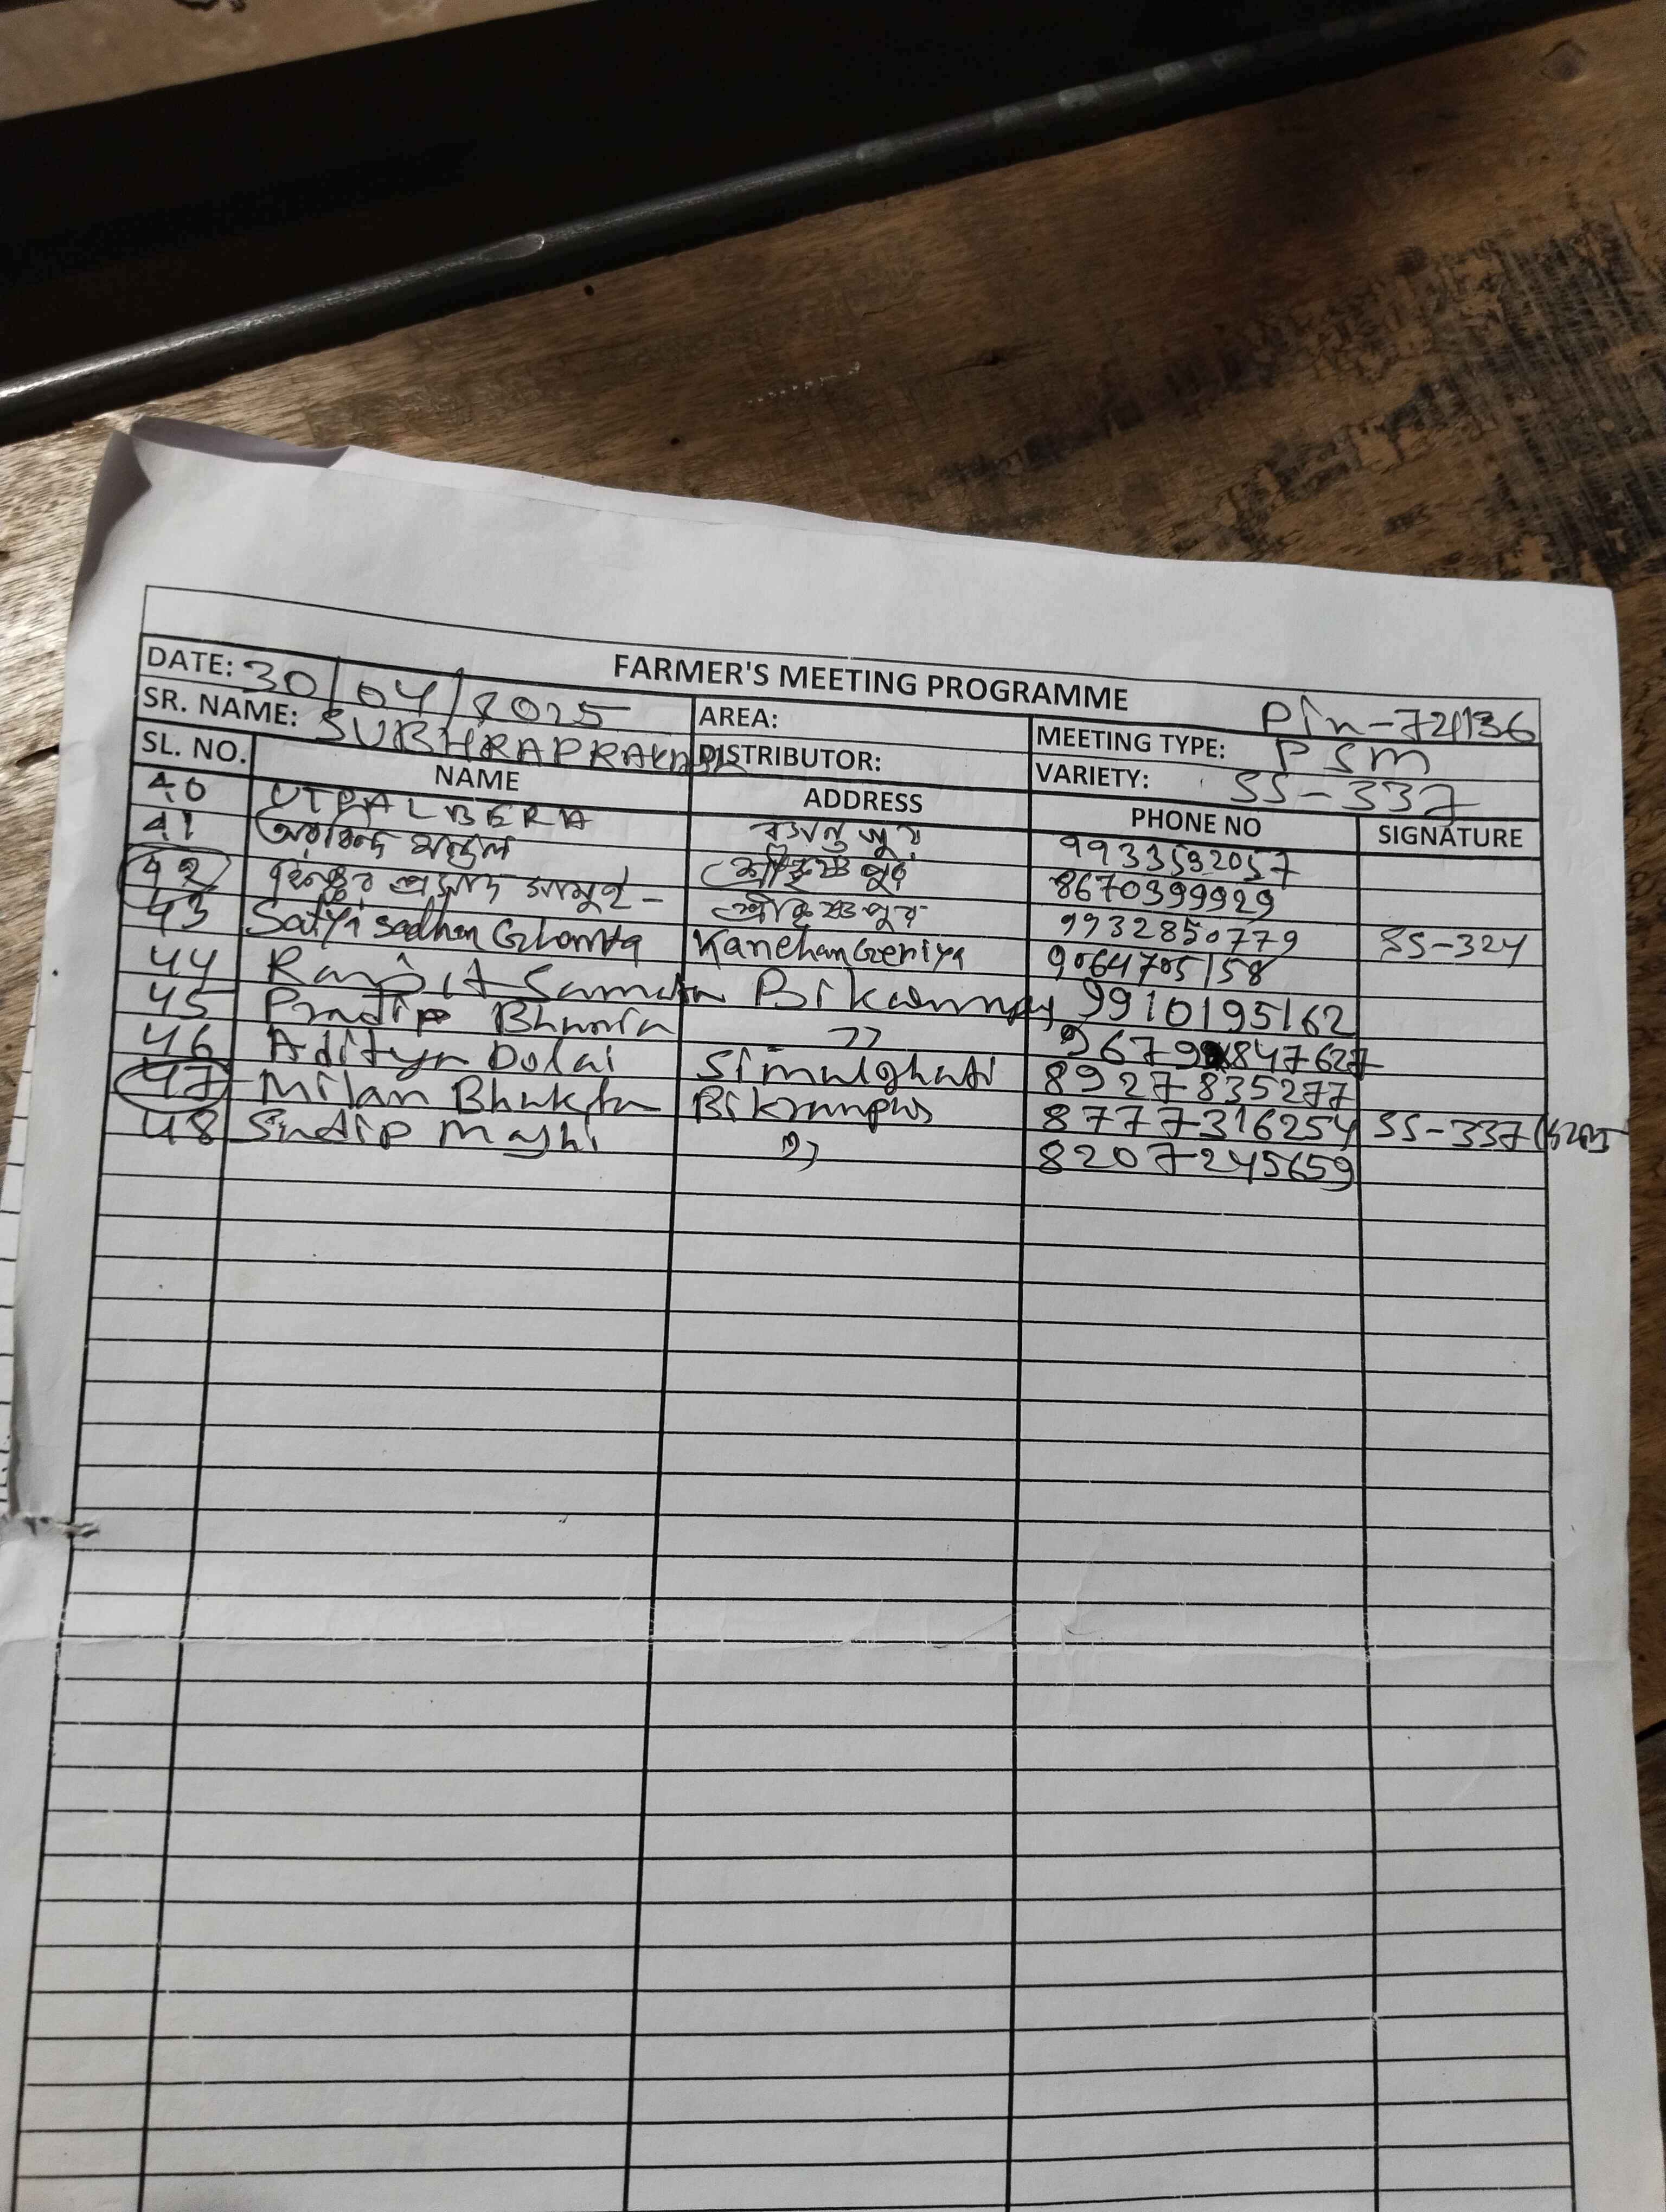 FARMER'S MEETING PROGRAMME
DATE: 30/04/2025 AREA: MEETING TYPE: PSM Pin-721136
SR. NAME: SUBHRAPRAKASH DISTRIBUTOR: VARIETY: SS-337
SL. NO. NAME ADDRESS PHONE NO SIGNATURE
40 UTPAL BERA 9933592057
41 অরবিন্দ মন্ডল শ্রীকৃষ্ণপুর 8670399929
42 প্রসাদ সামুই - শ্রীকৃষ্ণপুর 9932850779 SS-324
43 Satya sadhan Ghanta KanchanGeriya 9064705158
44 Ranjit Samanta Bikrampur 9910195162
45 Pradip Bhunia " 9679847627
46 Aditya Dolai Simulghati 8927835277
47 Milan Bhakta Bikrampur 8777316254 SS-337
48 Sudip Majhi " 8207245659